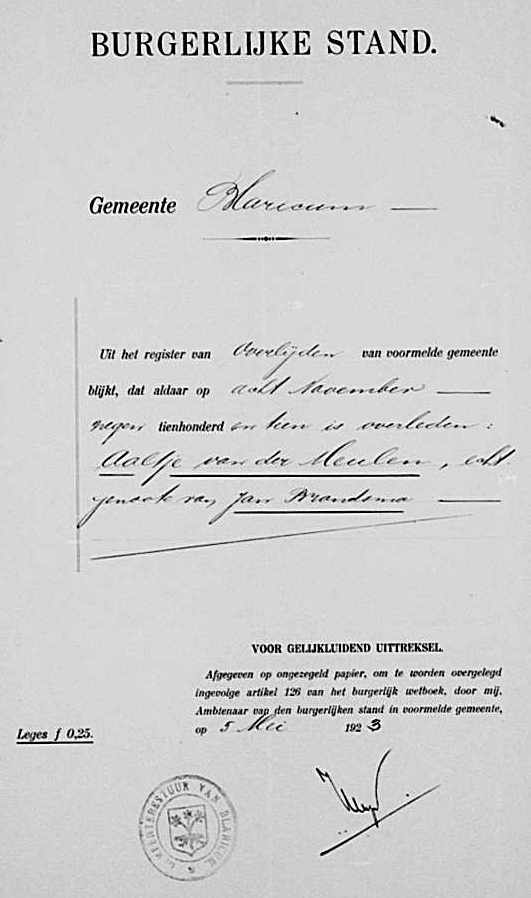 BURGERLIJKE STAND.
Gemeente Blaricum —
Uit het register van Overlijden van voormelde gemeente
blijkt, dat aldaar op acht November —
negen tienhonderd en tien is overleden :
Aaltje van der Meulen, echt-
genoote van Jan Brandsma —
VOOR GELIJKLUIDEND UITTREKSEL.
Afgegeven op ongezegeld papier, om te worden overgelegd
ingevolge artikel 126 van het burgerlijk wetboek, door mij,
Ambtenaar van den burgerlijken stand in voormelde gemeente,
op 5 Mei 1923
Leges f 0,25.
GEMEENTEBESTUUR VAN BLARICUM